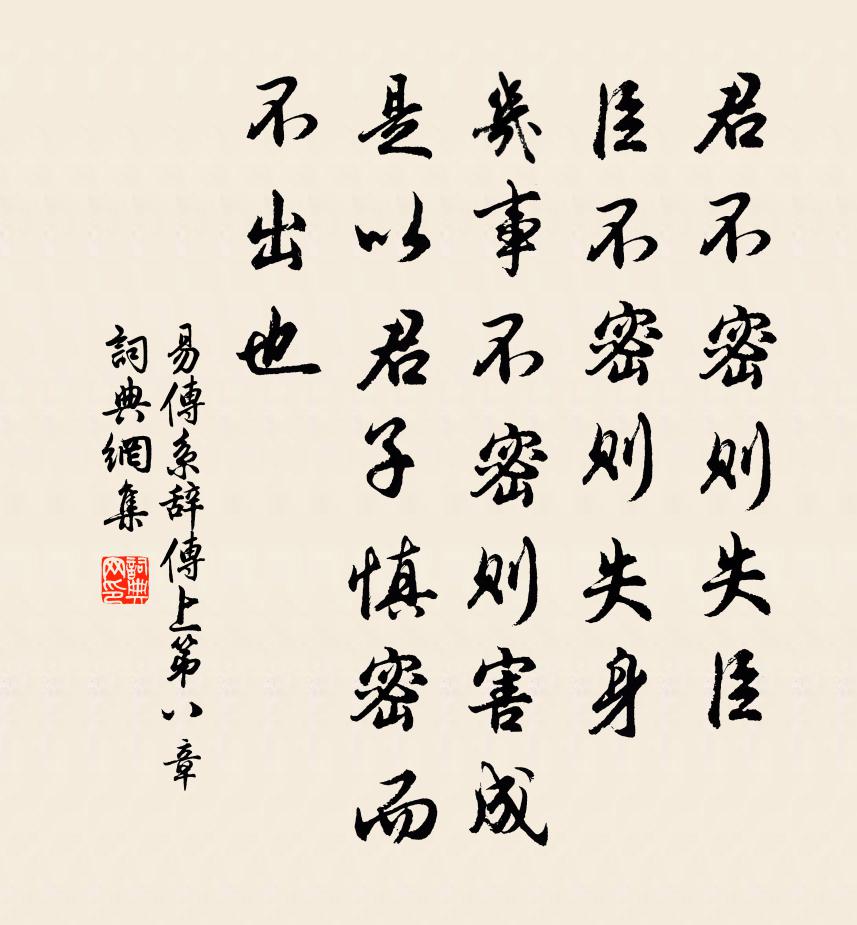 君不密則失臣
臣不密則失身
幾事不密則害成
是以君子慎密而
不出也
易傳系辞傳上第八章
詞典網集
詞典
网印